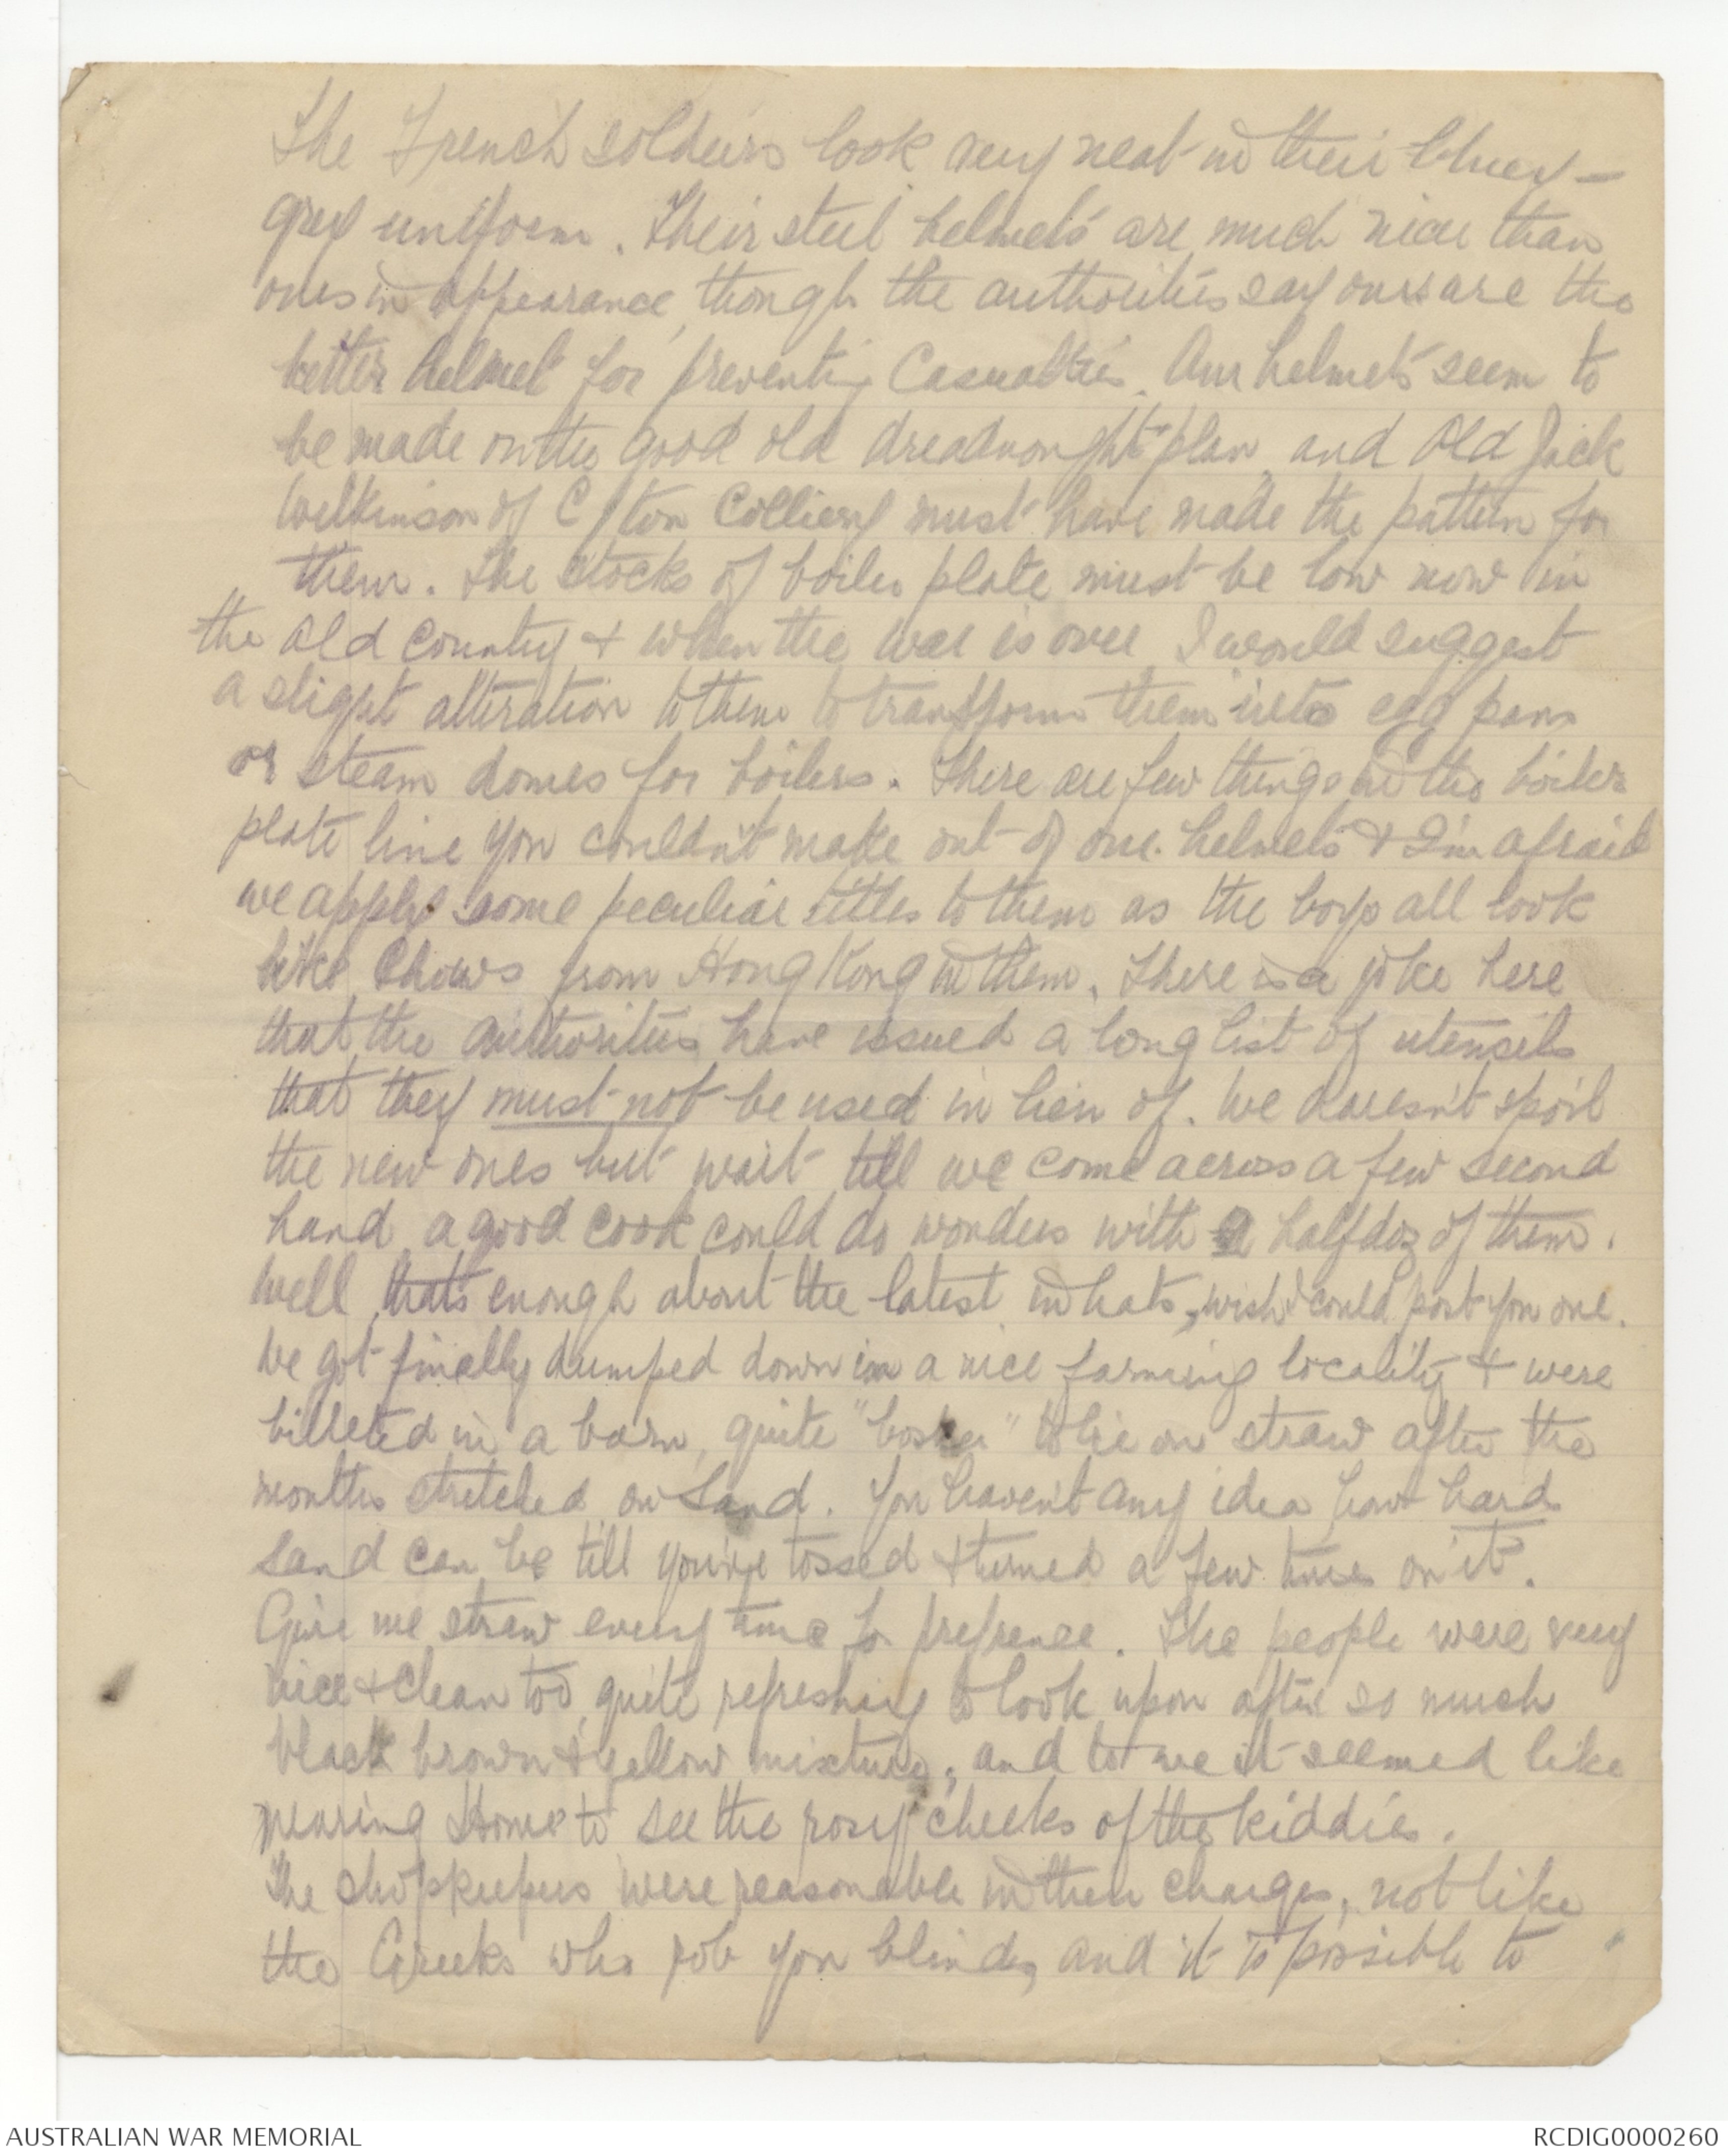 The French soldiers look very neat in their bluey-
grey uniform. Their steel helmets are much nicer than
ones in appearance, though the authorities say ours are the
better helmet for preventing Casualties. Our helmets seem to
be made on the good old dreadnought plan, and Old Jack
Wilkinson of Clfton Colliery must have made the pattern for
them. The stocks of boiler plate must be low now in
the Old Country & when the war is over I would suggest
a slight alteration to them to transform them into egg pans
or steam domes for boilers. There are few things in the boiler
plate line you couldn't make out of our helmets & I'm afraid
we apply some peculiar titles to them as the boys all look
like Chows from Hong Kong in them. There is a joke here
that the authorities have issued a long list of utensils
that they must not be used in lieu of. We doesn't spoil
the new ones but wait till we come across a few second
hand, a good cook could do wonders with a half doz of them.
Well, thats enough about the latest in hats, wish I could post you one.
We got finally dumped down in a nice farming locality & were
billeted in a barn, quite "bosker" to lie on straw after the
months stretched on Sand. You haven't any idea how hard
Sand can be till you've tossed & turned a few times on it.
Give me straw every time for prefrence. The people were very
nice & clean too, quite refreshing to look upon after so much
black brown & yellow mixture, and to me it seemed like
nearing Home to see the rosy cheeks of the kiddies.
The shopkeepers were reasonable in their charges, not like
the Greeks who rob you blind, and it is possible to
AUSTRALIAN WAR MEMORIAL
RCDIG0000260